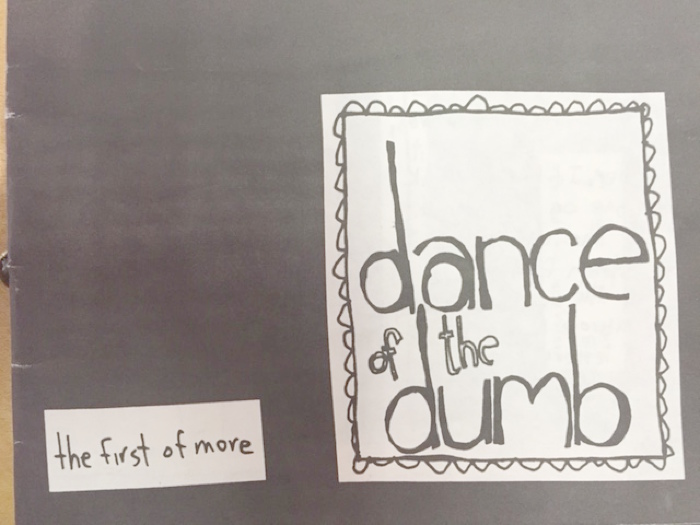 dance
of the
dumb
the first of more